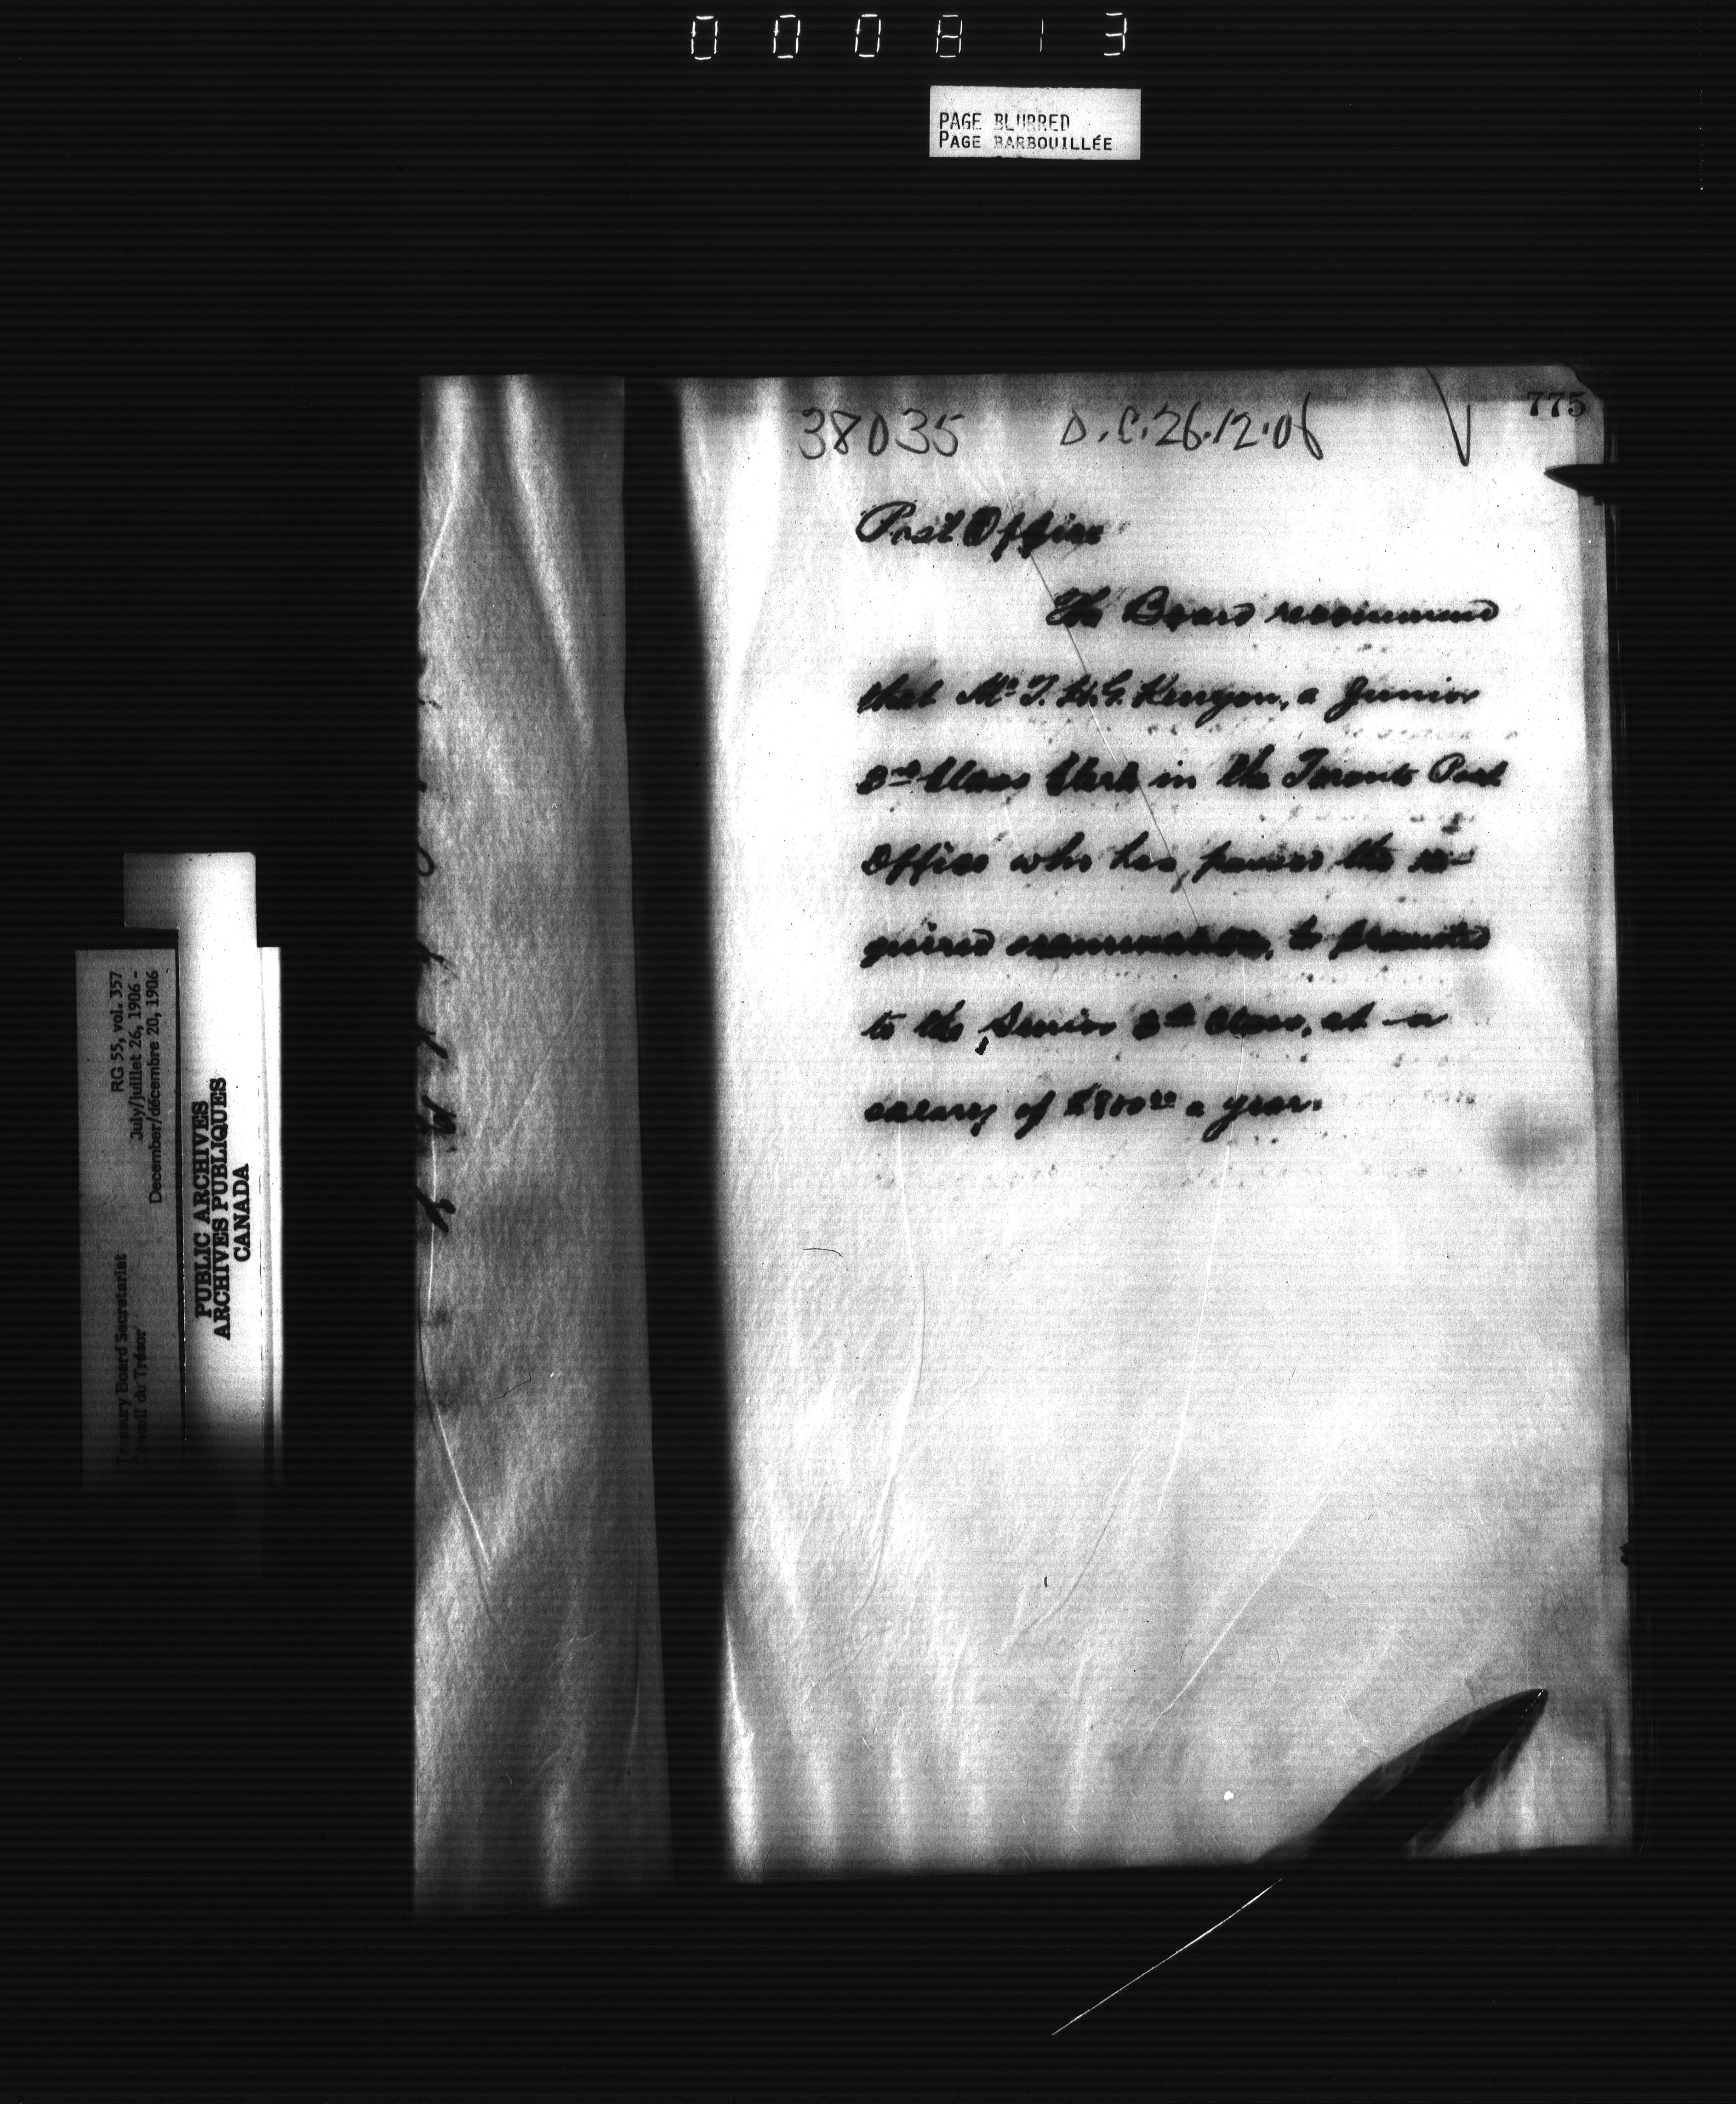 000813
PAGE BLURRED
PAGE BARBOUILLÉE
775
38035 O.C. 26.12.06
Post Office
The Board recommend
that Mr T. H. G. Kenyon, a Junior
3rd Class Clerk in the Toronto Post
Office who has passed the re-
quired examination, be promoted
to the Senior 3rd Class, at a
salary of $800.00 a year.
RG 55, vol. 357
July/juillet 26, 1906 -
December/décembre 20, 1906
Treasury Board Secretariat
Conseil du Trésor
PUBLIC ARCHIVES
ARCHIVES PUBLIQUES
CANADA